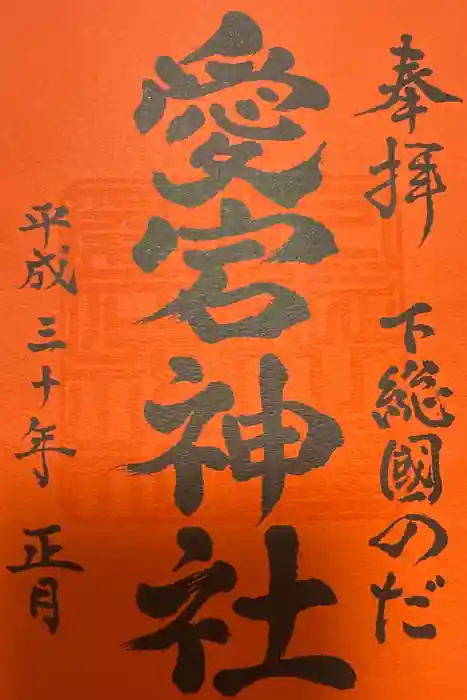 奉拝
下総國のだ
愛宕神社
平成三十年正月